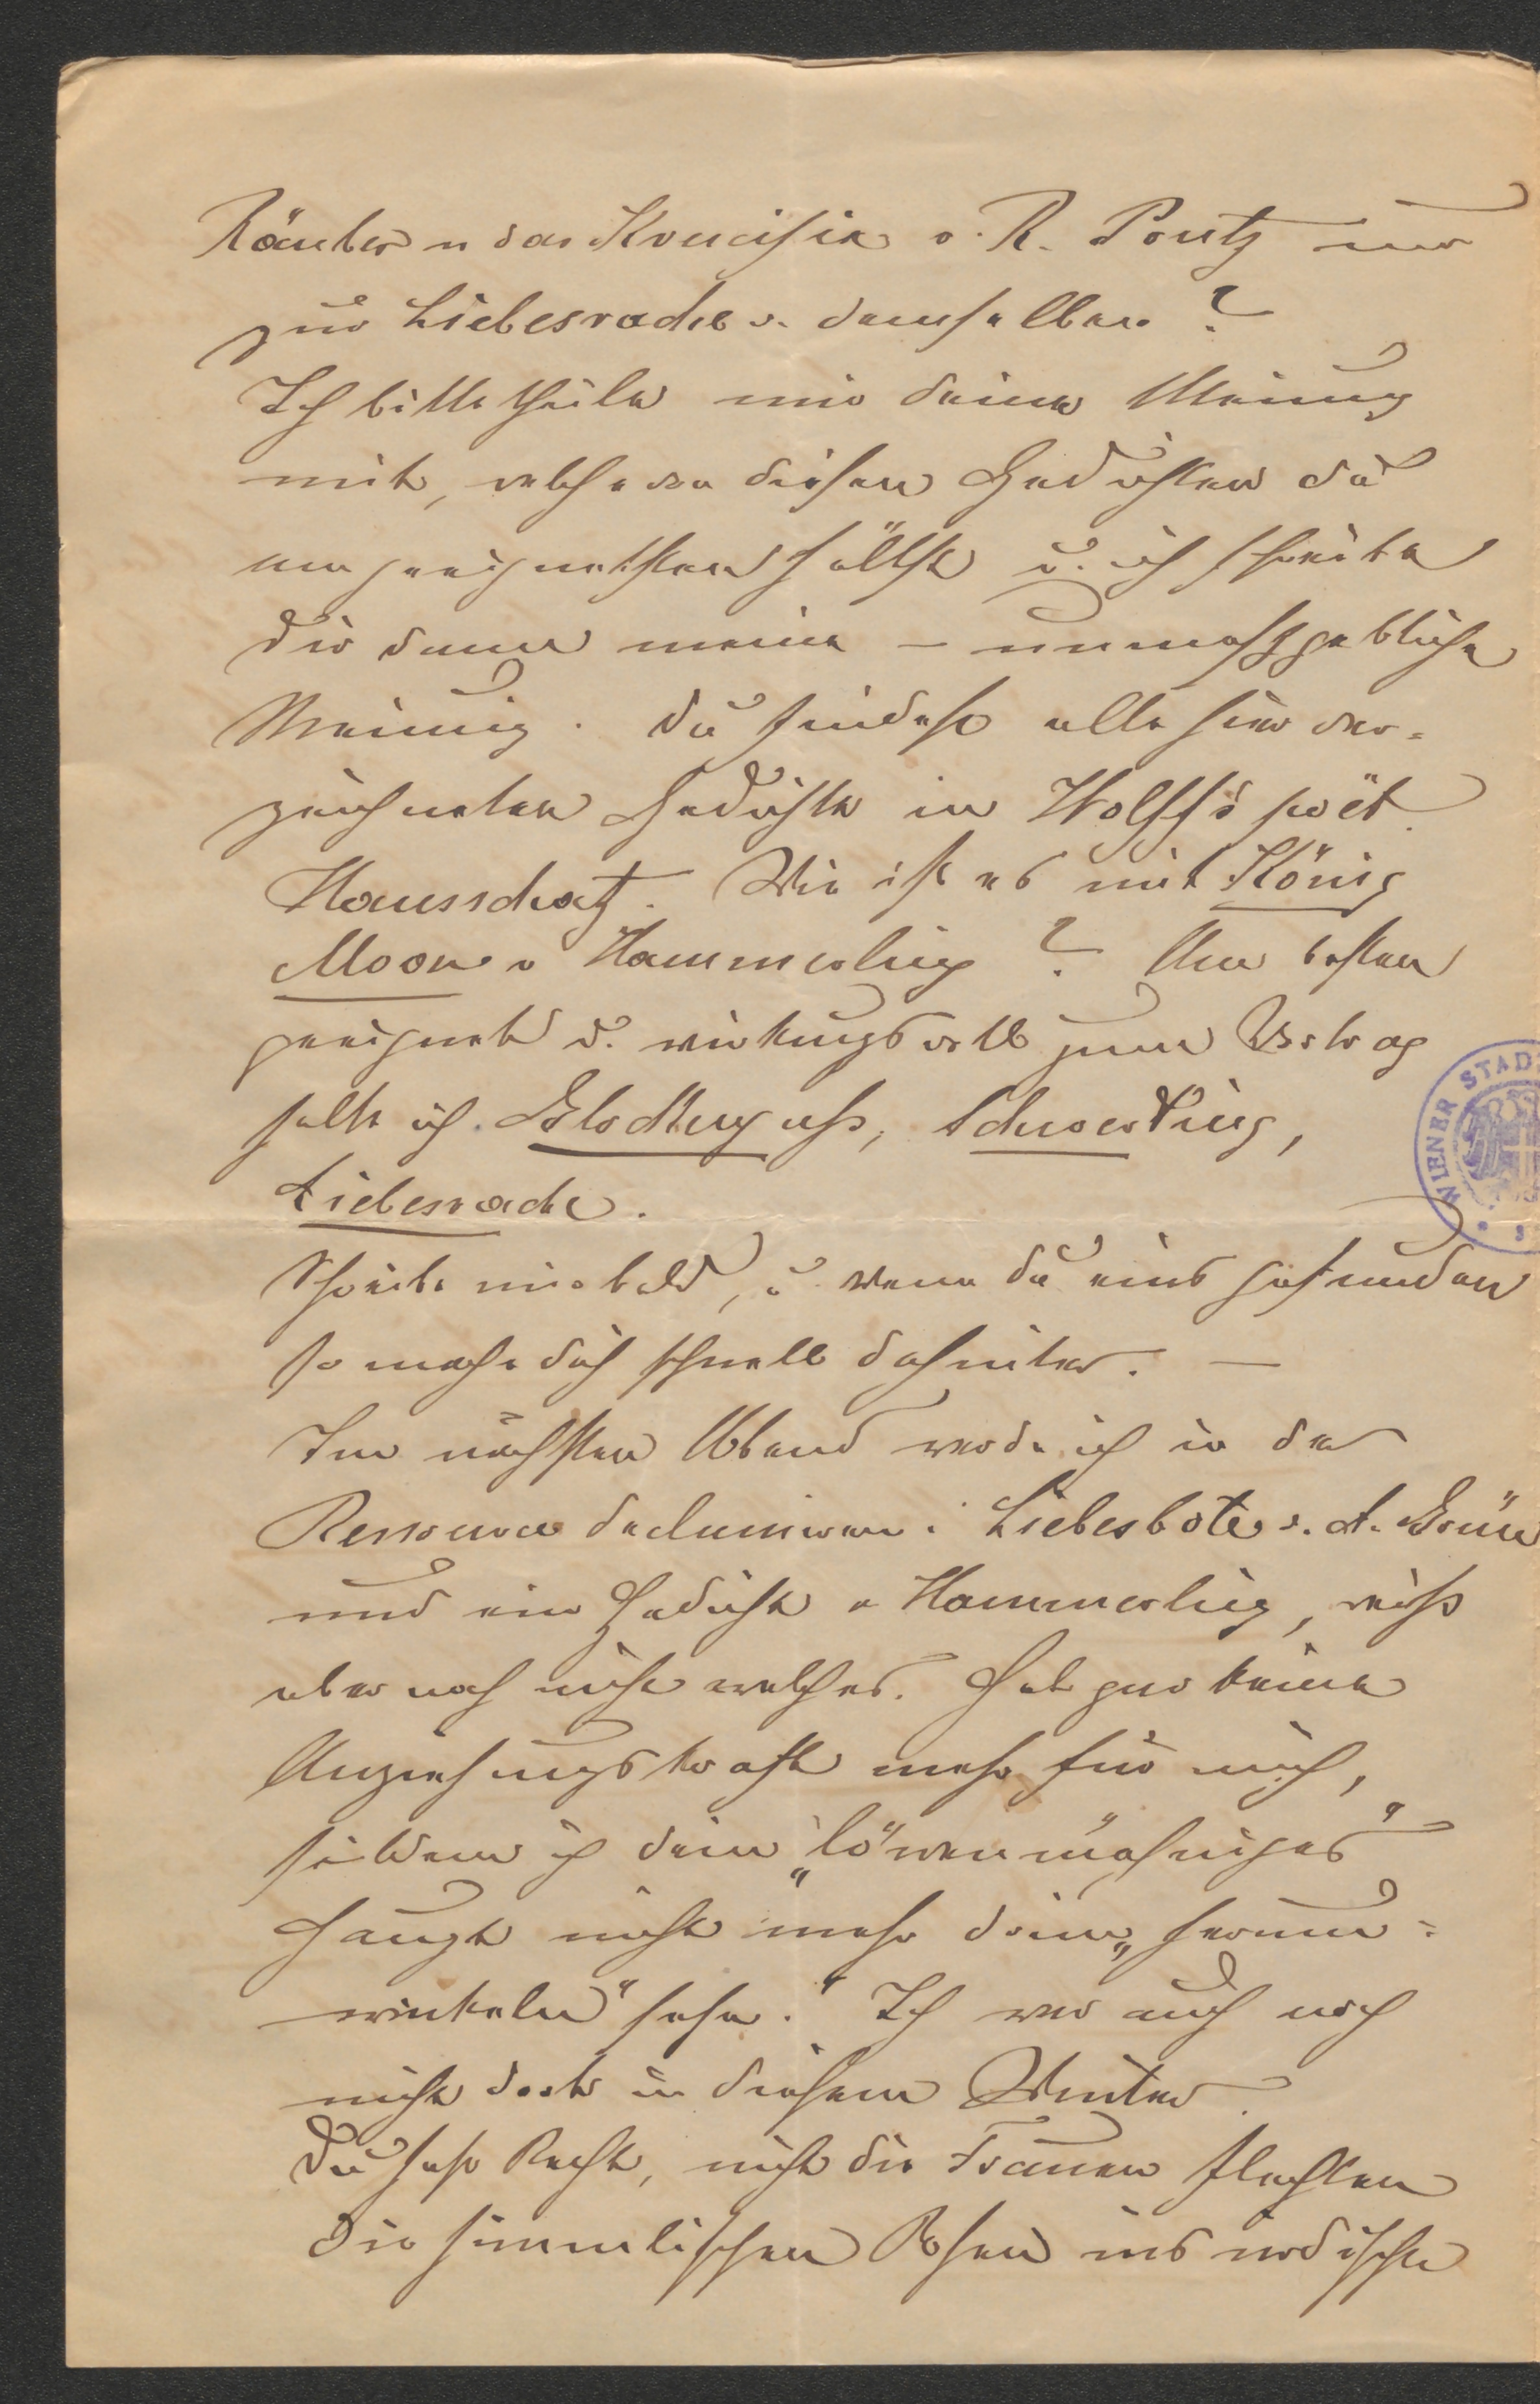 Räuber u das Krucifix v. R. Prutz nur
zur Liebesrache v. demselben?
Ich bitte theile mir deine Meinung
mit, welche von diesen Gedichten du
am geeignetsten hältst u. ich schreibe
dir dann meine – unmaßgebliche
Meinung. Du findest alle hier ver=
zeichneten Gedichte in Wolff's poët.
Hausschatz. Wie ist es mit König
Moor v Hammerling? Am besten
geeignet u. wirkungsvoll zum Vortrag
halte ich Glockenguß, Schwerting,
Liebesrache.
Schreibe mir bald, u. wenn du eins gefunden
so mache dich schnell dahinter. —
Im nächsten Abend werde ich in der
Ressource declamiren: Liebesbote v. A. Grün
und ein Gedicht v Hammerling, weiß
aber noch nicht welches. Hat gar keine
Anziehungskraft mehr für mich,
seitdem ich dein „löwenmähniges"
Haupt nicht mehr drin „herum=
winkeln" sehe." Ich war auch noch
nicht dort in diesem Winter.
Du hast Recht, nicht die Frauen flechten
die himmlischen Rosen ins irdische
WIENER STAD